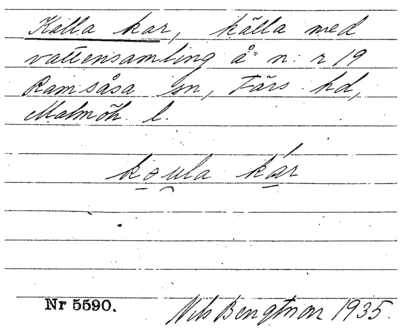 Källa kar, källa med
vattensamling å n:r 19
Ramsåsa sn, Färs hd,
Malmöh. l.
koula kár
Nr 5590.
Nils Bengtson 1935.